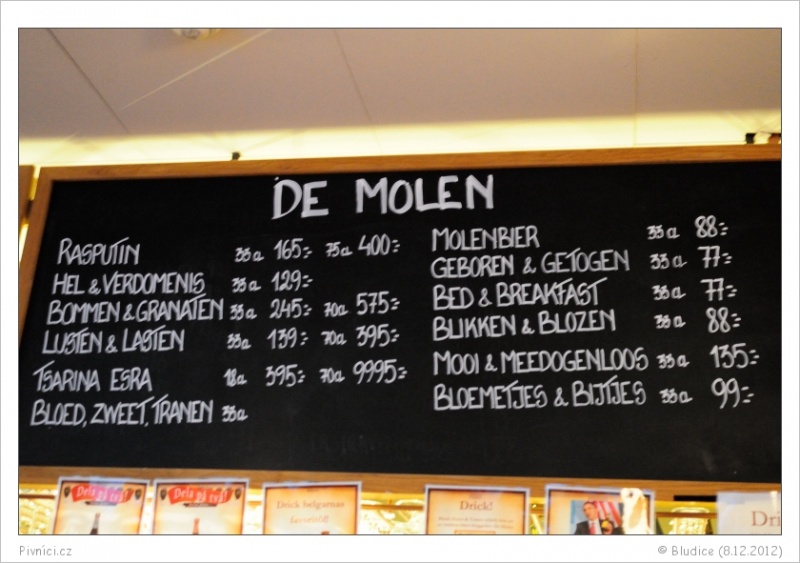 DE MOLEN
RASPUTIN 33a 165:- 75a 400:-
HEL & VERDOMENIS 33a 129:-
BOMMEN & GRANATEN 33a 245:- 70a 575:-
LUSTEN & LASTEN 33a 139:- 70a 395:-
TSARINA ESRA 18a 395:- 70a 9995:-
BLOED, ZWEET, TRANEN 33a
MOLENBIER 33a 88:-
GEBOREN & GETOGEN 33a 77:-
BED & BREAKFAST 33a 77:-
BLIKKEN & BLOZEN 33a 88:-
MOOI & MEEDOGENLOOS 33a 135:-
BLOEMETJES & BIJTJES 33a 99:-
Dela på två!
Dela på två!
Drick belgarnas
favoritöl!
Drick!
Dri
Pivníci.cz
© Bludice (8.12.2012)